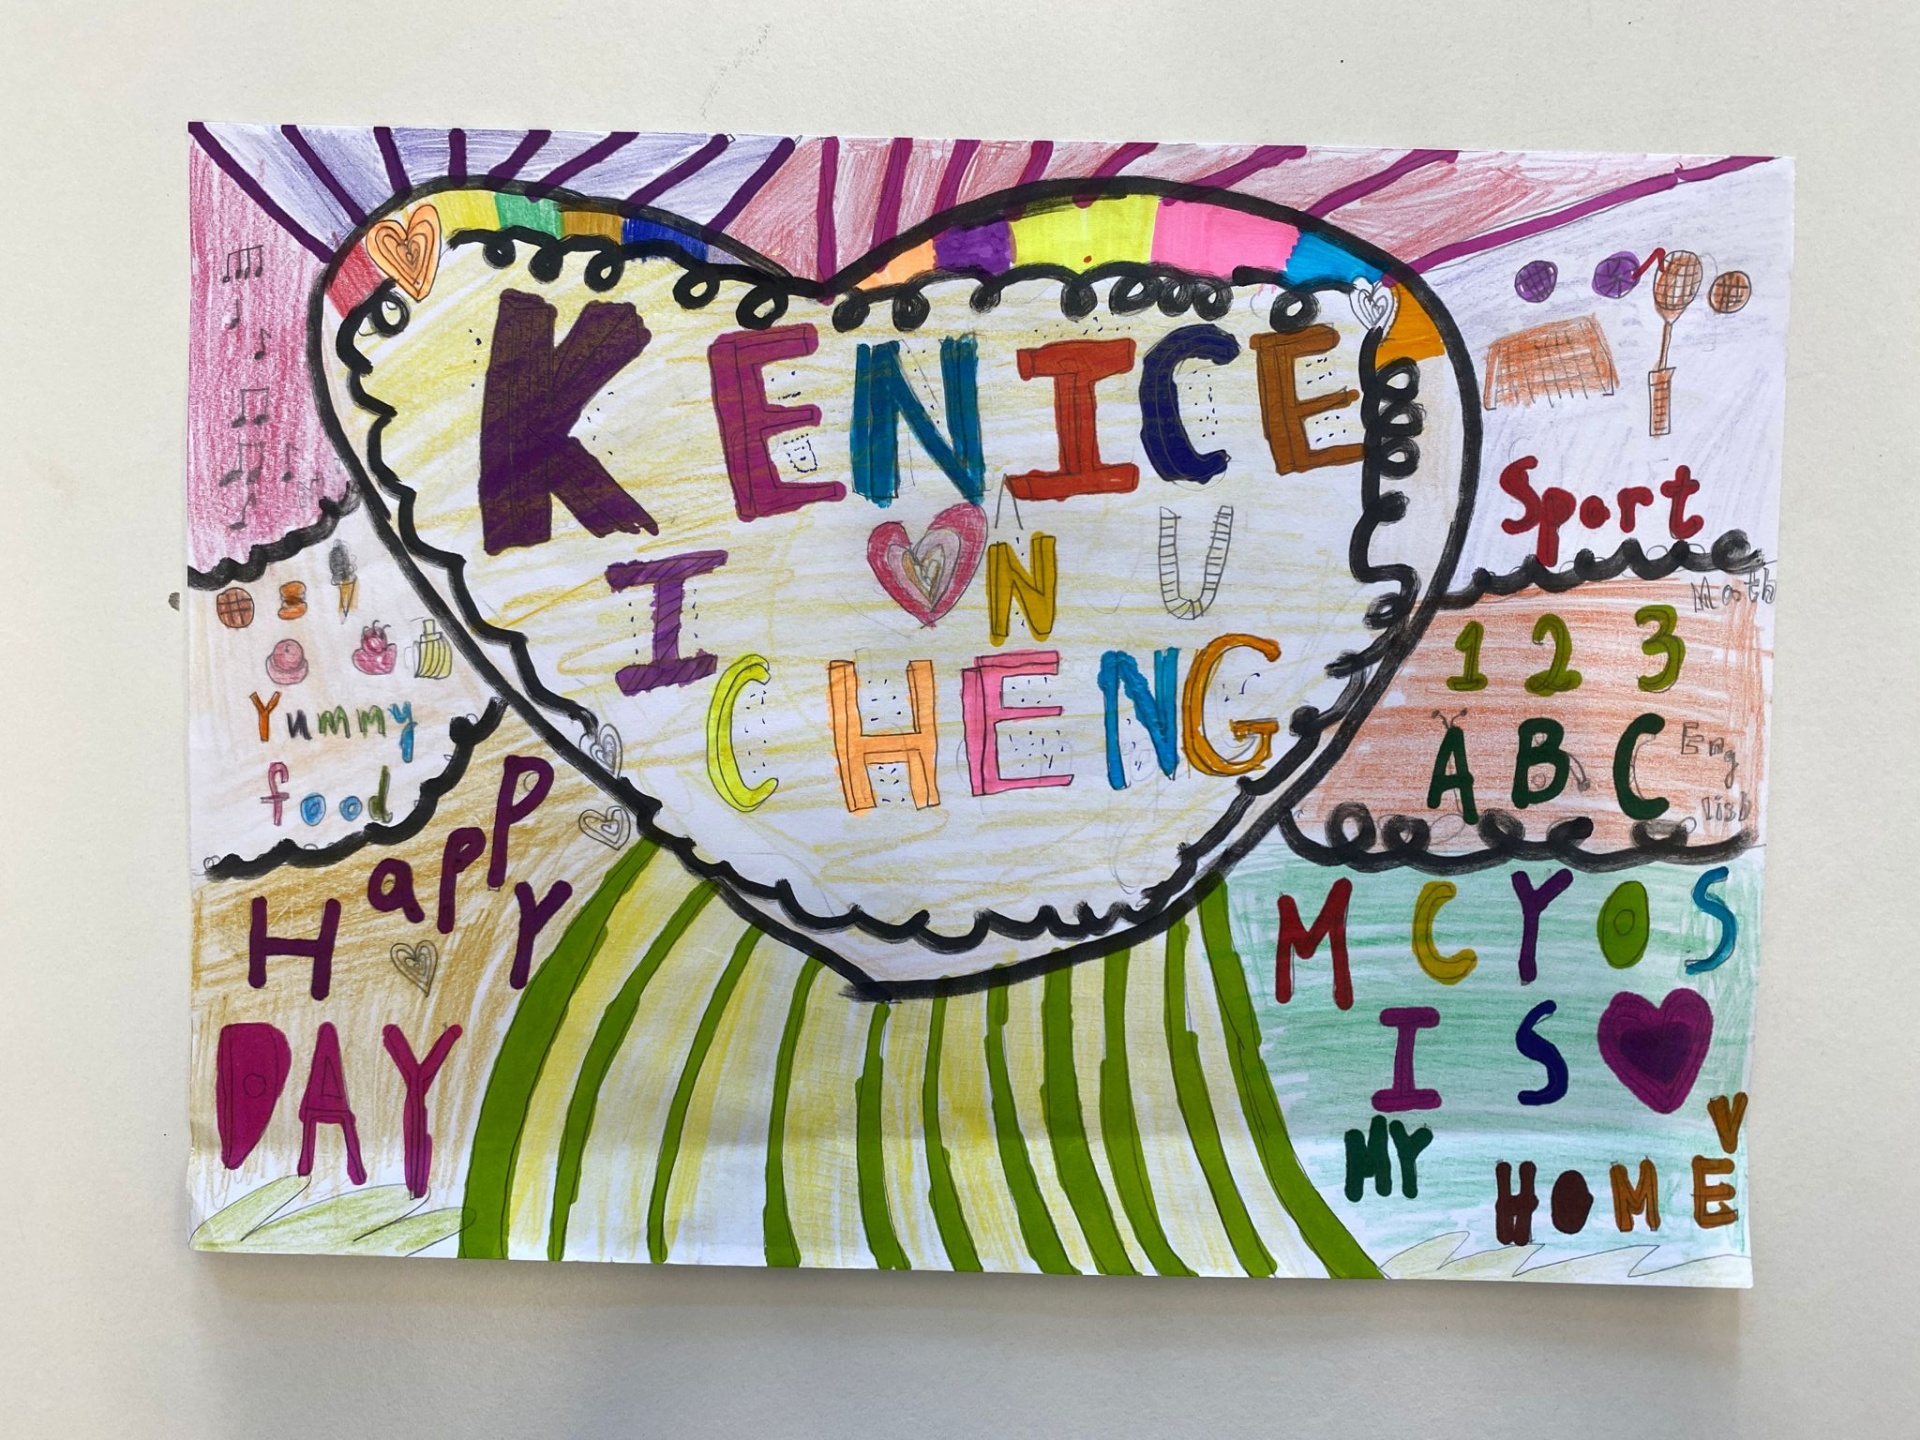 KENICE
I N U
CHENG
Yummy
food
Happy
DAY
Sport
Math
1 2 3
A B C
Eng
lish
MCYOS
IS
MY HOME
V